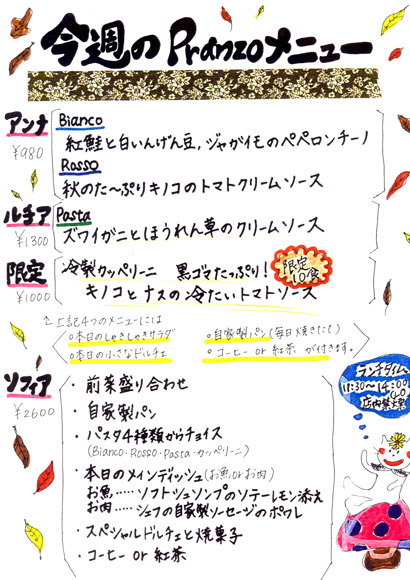 今週のPranzoメニュー
アンナ Bianco
¥980
紅鮭と白いんげん豆,ジャガイモのペペロンチーノ
Rosso
秋のた〜ぷりキノコのトマトクリームソース
ルチア Pasta
¥1300
ズワイガニとほうれん草のクリームソース
限定
¥1000
冷製カッペリーニ 黒ゴマたっぷり!
限定
10食
キノコとナスの冷たいトマトソース
上記4つのメニューには
○本日のしゃきしゃきサラダ ○自家製パン(毎日焼きたて)
○本日の小さなドルチェ ○コーヒー or 紅茶 が付きます。
ランチタイム
11:30〜14:00
店内禁煙
ソフィア
¥2600
・前菜盛り合わせ
・自家製パン
・パスタ4種類からチョイス
(Bianco・Rosso・Pasta・カッペリーニ)
・本日のメインディッシュ(お魚 or お肉)
お魚……ソフトシュリンプのソテーレモン添え
お肉……シェフの自家製ソーセージのポワレ
・スペシャルドルチェと焼菓子
・コーヒー or 紅茶